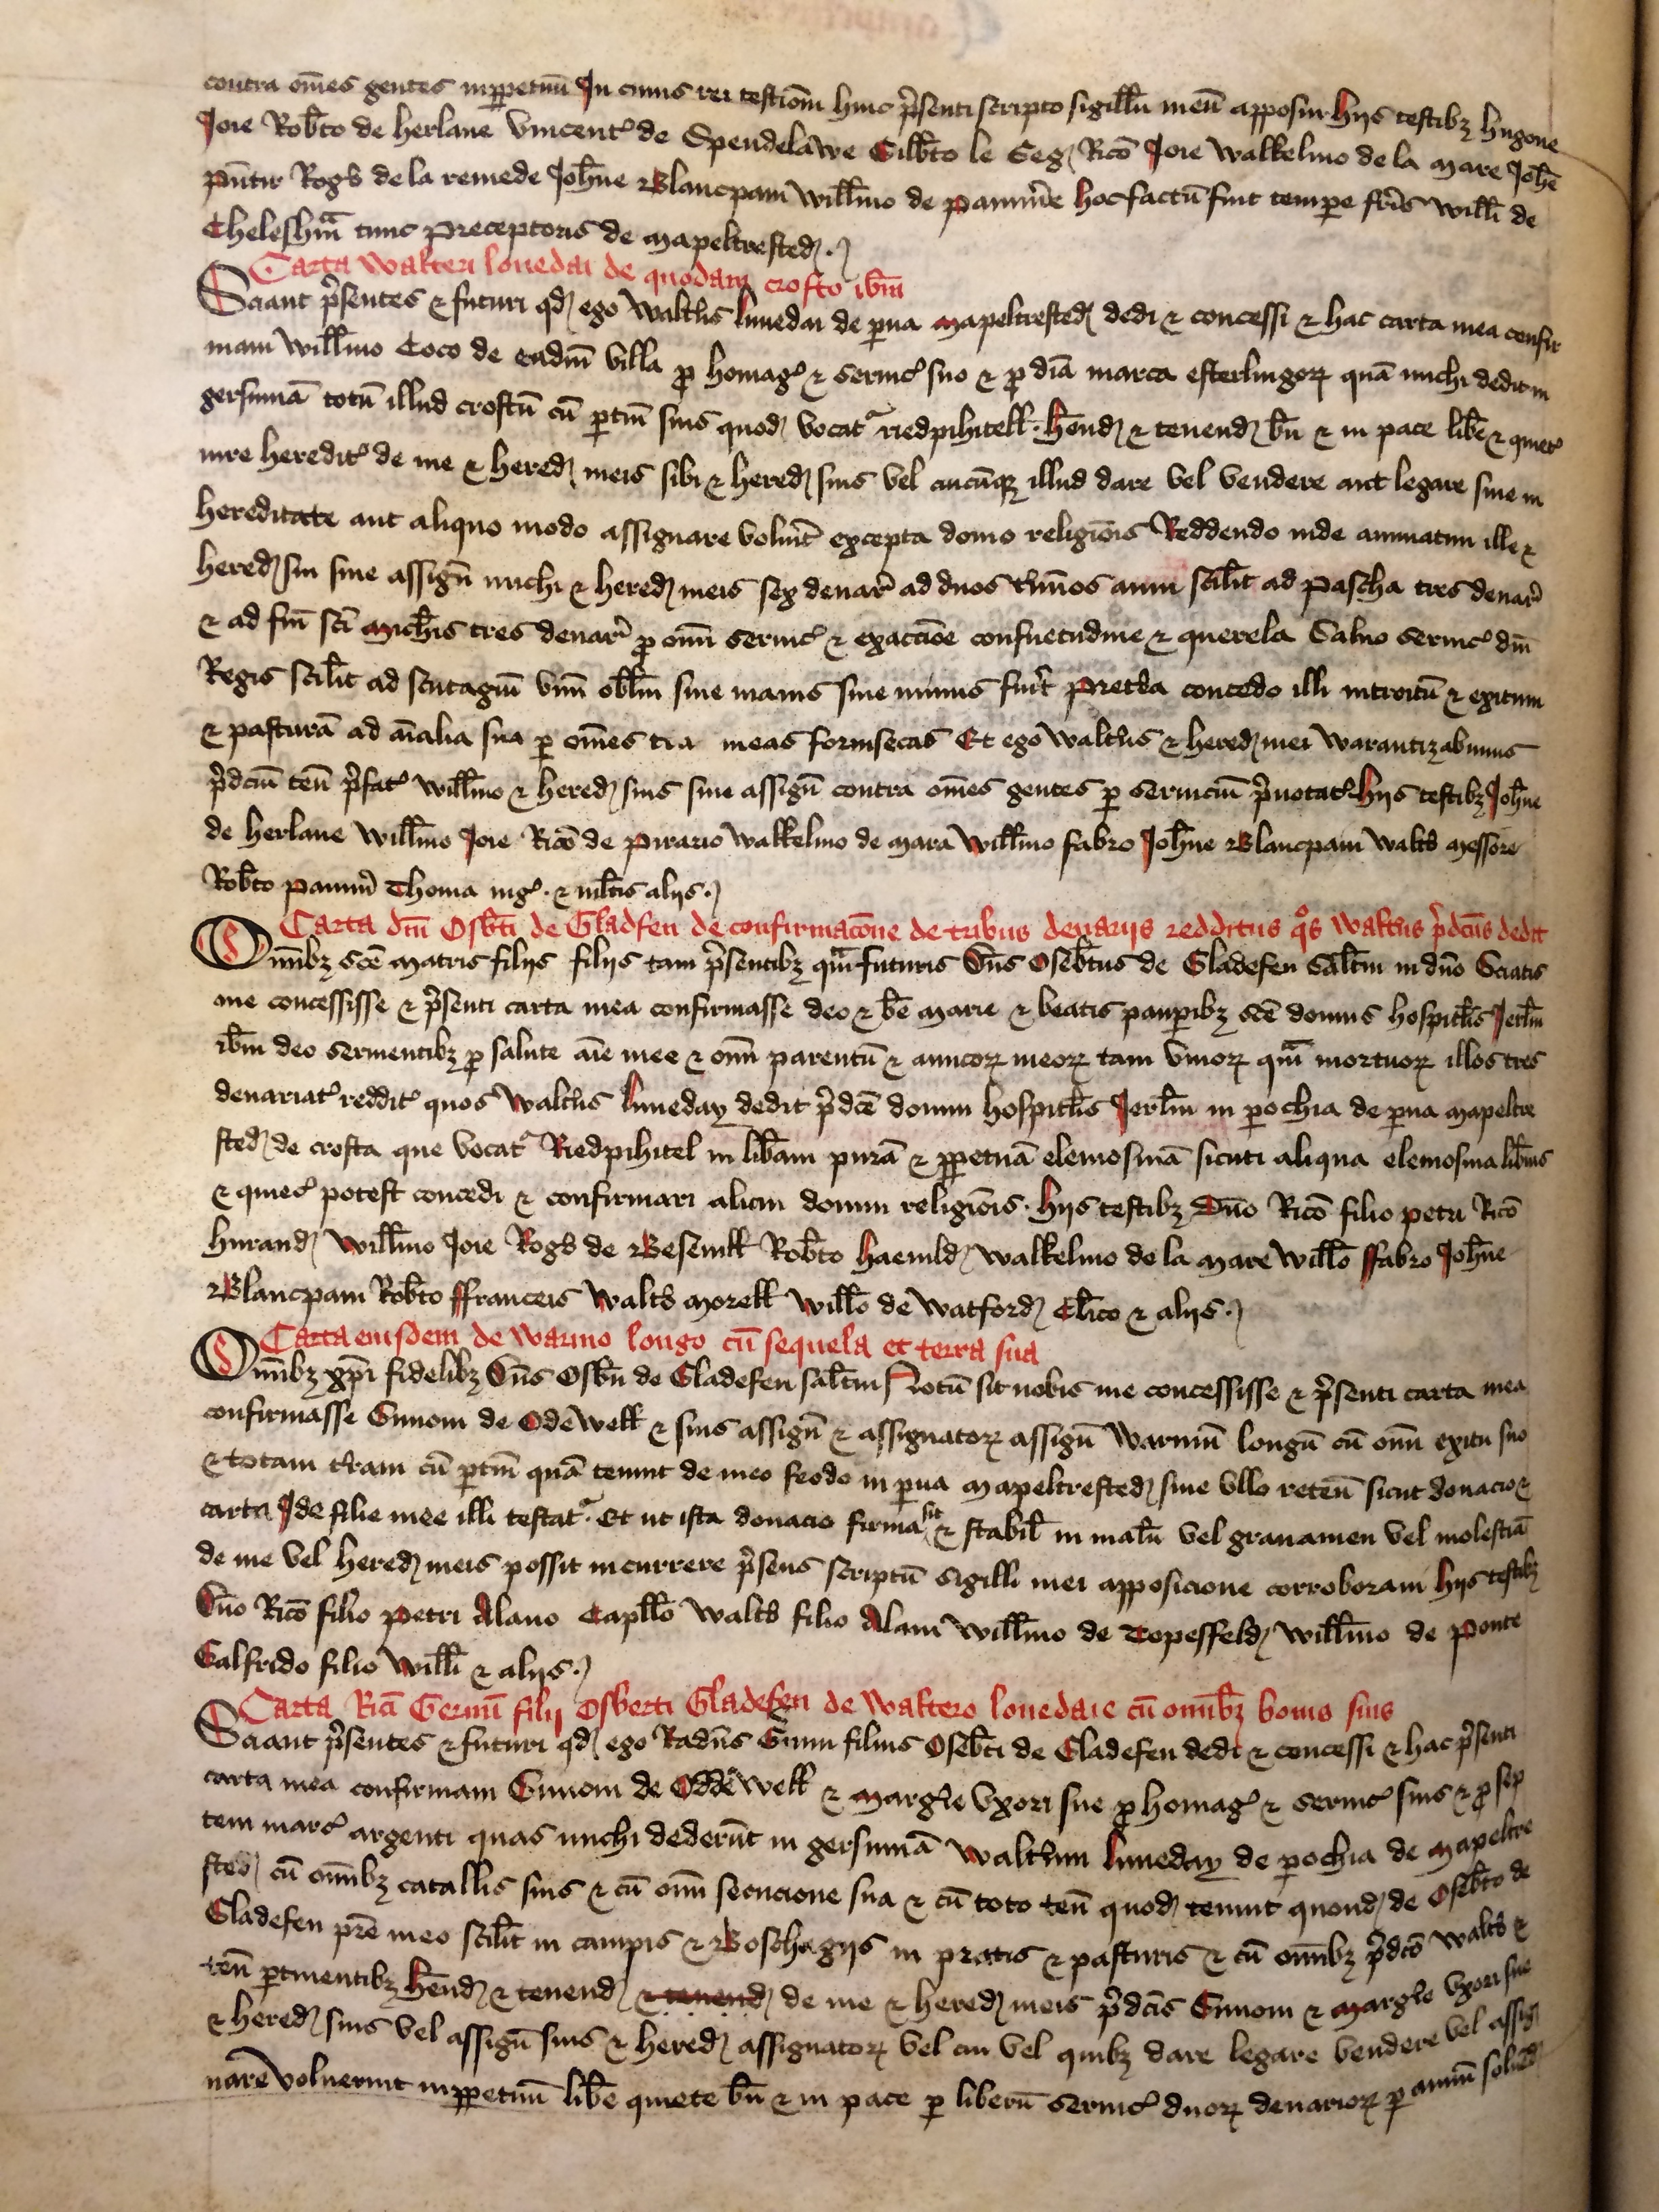 contra om̄es gentes inꝑpetuū In cuius rei testiom̄ huic p̄senti scripto sigillū meū apposui hijs testibꝫ hugone
Joie Rob̄to de herlaue vincent̉ de Spendelawe Gilb̄to le Seg̉ Ric̄o Joie Walkelino de la mare Joh̄e
Rog̉o de la remede Joh̄ne Blancpain Will̄mo de hoc factū fuit tempe fr̄is Will̄i de
Chelesh̄m tunc preceptoris de mapeltrested̉
Carta Walteri louedai de quodam crofto ib̄m
Sciant p̄sentes ⁊ futuri qd̉ ego Walt̄us luuedai de ꝑua mapeltrested̉ dedi ⁊ concessi ⁊ hac carta mea confir
maui Will̄mo Coco de eadm̄ villa ꝓ homag̉ ⁊ seruic̉ suo ⁊ ꝓ diā marca esterlingoꝝ quā michi dedit in
gersumā totū illud croftū cū ꝑtin̄ suis quod̉ vocat̉ riedpihitell̄ h̄end̉ ⁊ tenend̉ bn̄ ⁊ in pace lib̄e ⁊ quiet̉
iure heredit̉ de me ⁊ hered̉ meis sibi ⁊ hered̉ suis vel cuicūqꝫ illud dare vel vendere aut legare siue in
hereditate aut aliquo modo assignare voluit̄ excepta domo religiōis Reddendo inde annuatim ille ⁊
hered̉ sui siue assign̄ michi ⁊ hered̉ meis sex denar̄ ad duos t̄mīos anni scil̄it ad pascha tres denar̄
⁊ ad fm̄ sc̄i mich̄is tres denar̄ ꝓ omī seruic̉ ⁊ exaccōe consuetudine ⁊ querela Saluo seruic̉ dn̄i
Regis scil̄it ad scutagiū vnū obl̄m siue maius siue minus fuit̄ Pret̄ea concedo illi introitū ⁊ exitum
⁊ pasturā ad aīalia sua ꝑ om̄es t̄ra meas forinsecas Et ego Walt̄us ⁊ hered̉ mei warantizabimus
p̄dcū ten̄ p̄fat̉ Will̄mo ⁊ hered̉ suis siue assign̄ contra om̄es gentes ꝑ seruiciū p̄notat̉ hijs testibꝫ Joh̄ne
de herlaue Will̄mo Joie Ric̄o de pirario Walkelino de mara Will̄mo fabro Joh̄ne Blancpain Walt̄o messore
Rob̄to Thoma ing̉ ⁊ mlt̄is alijs
Carta dn̄i Osb̄ti de Gladfen de confirmac̄one de tribus denarijs redditus qͦs Walt̄us p̄dcūs dedit
Omībꝫ sc̄e matris filijs filijs tam p̄sentibꝫ qm̄ futuris Dn̄s Oseb̄tus de Gladefen sal̄tm in dn̄o Sciatis
me concessisse ⁊ p̄senti carta mea confirmasse deo ⁊ b̄e marie ⁊ beatis pauꝑibꝫ sc̄e domus hospital̄is Jerl̄m
ib̄m deo seruientibꝫ ꝓ salute aīe mee ⁊ omī parentū ⁊ amicoꝝ meoꝝ tam viuoꝝ qm̄ mortuoꝝ illos tres
denariat̉ reddit̉ quos Walt̄us luueday dedit p̄dcē domui hospital̄is Jerl̄m in ꝑochia de ꝑua mapeltre
sted̉ de crofta que vocat̉ Riedpihitel in lib̄am purā ⁊ ꝑpetuā elemosinā sicuti aliqua elemosina lib̄ius
⁊ quiec̉ potest concedi ⁊ confirmari alicui domui religiōis hijs testibꝫ Dn̄o Ric̄o filio petri Ric̄o
hurand̉ Will̄mo Joie Rog̉o de Beseuill̄ Rob̄to haenild̉ Walkelino de la mare Will̄o ffabro Joh̄ne
Blancpain Rob̄to ffranceis Walt̄o morell̄ Will̄o de Watford̉ Cl̄ico ⁊ alijs
Carta eiusdem de Warino longo cū sequela et terra sua
Omībꝫ xp̄i fidelibꝫ Dn̄s Osb̄n de Gladefen sal̄tm Notū sit uobis me concessisse ⁊ p̄senti carta mea
confirmasse Simoni de Odewell̄ ⁊ suis assign̄ ⁊ assignatoꝝ assign̄ Warinū longū cū omī exitu suo
⁊ totam t̄ram cū ꝑtin̄ quā tenuit de meo feodo in ꝑua mapeltrested̉ sine vllo reten̄ sicut donacio ⁊
carta Jde filie mee illi testat̉ Et ut ista donacio firma sit ⁊ stabil̄ in mal̄u vel grauamen vel molestiā
de me vel hered̉ meis possit incurrere p̄sens scriptū sigilli mei apposicione corroboraui hijs testibꝫ
Dn̄o Ric̄o filio Petri Alano Capll̄o Walt̄o filio Alani Will̄mo de Topesfeld̉ Will̄mo de Ponte
Galfrido filio Will̄i ⁊ alijs
Carta Ric̄i Germū filij Osberti Gladefen de Waltero louedaie cū omībꝫ bonis suis
Sciant p̄sentes ⁊ futuri qd̉ ego Radūs filius Oseb̄ti de Gladefen dedi ⁊ concessi ⁊ hac p̄senti
carta mea confirmaui Simoni de Oddewell̄ ⁊ Marg̉ie vxori sue ꝓ homag̉ ⁊ seruic̉ suis ⁊ ꝓ sep
tem marc̉ argenti quas michi dederūt in gersumā Walt̄um luueday de ꝑochia de mapeltre
sted̉ cū omībꝫ catallis suis ⁊ cū omī secucione sua ⁊ cū toto ten̄ quod̉ tenuit quond̉ de Oseb̄to de
Gladefen pr̄e meo scil̄it in campis ⁊ Boschagijs in pratis ⁊ pasturis ⁊ cū omībꝫ p̄dcō Walt̄o ⁊
ten̄ ꝑtinentibꝫ h̄end̉ ⁊ tenend̉ ⁊ tenend̉ de me ⁊ hered̉ meis p̄dcīs Simoni ⁊ Marg̉ie vxori sue
⁊ hered̉ suis vel assign̄ suis ⁊ hered̉ assignatoꝝ vel cui vel quibꝫ dare legare vendere vel assig
nare voluerint inꝑpetuū lib̄e quiete bn̄ ⁊ in pace ꝑ liberū seruic̉ duoꝝ denarioꝝ ꝑ annū soluēd̉